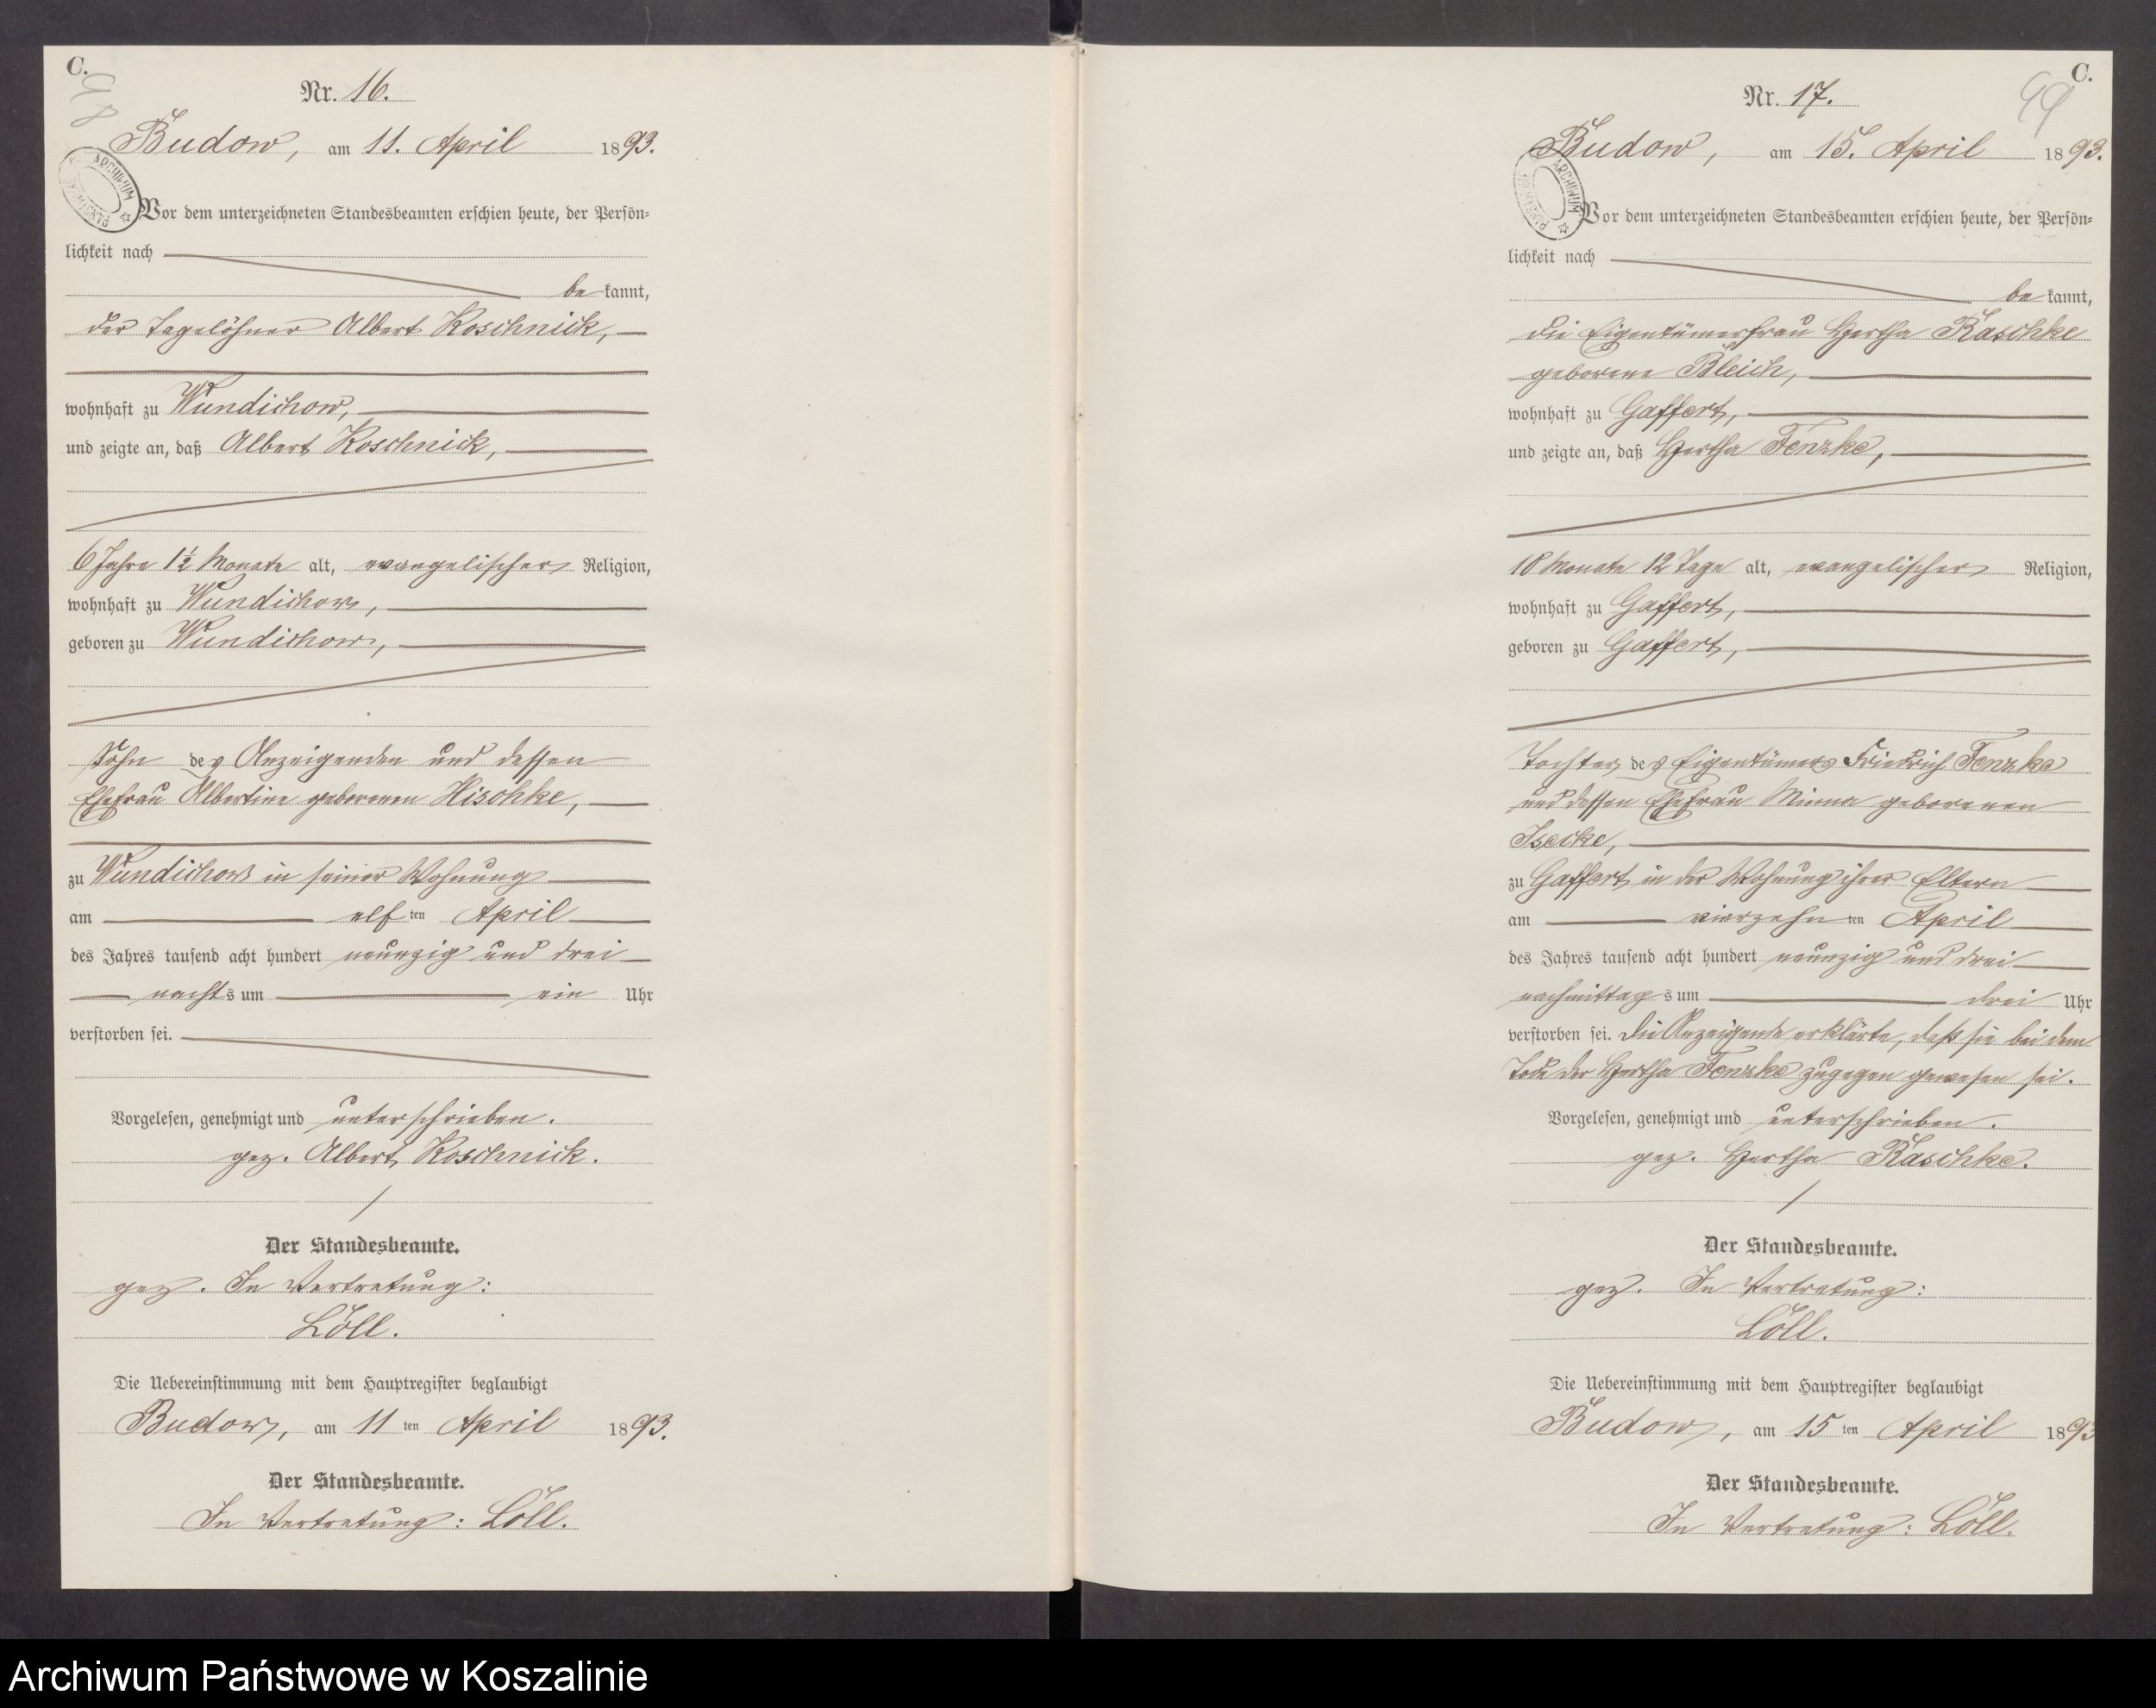 C.
98
Nr. 16.
Budow, am 11. April 1893.
ARCHIWUM
Vor dem unterzeichneten Standesbeamten erschien heute, der Persön-
lichkeit nach
be kannt,
der Tagelöhner Albert Koschnick,
wohnhaft zu Wundichow,
und zeigte an, daß Albert Koschnick,
6 Jahre 1½ Monate alt, evangelischer Religion,
wohnhaft zu Wundichow,
geboren zu Wundichow,
Sohn des Anzeigenden und dessen
Ehefrau Albertine geborenen Hischke,
zu Wundichow in seiner Wohnung
am elf ten April
des Jahres tausend acht hundert neunzig und drei
nachts um ein Uhr
verstorben sei.
Vorgelesen, genehmigt und unterschrieben.
gez. Albert Koschnick.
Der Standesbeamte.
gez. In Vertretung:
Löll.
Die Uebereinstimmung mit dem Hauptregister beglaubigt
Budow, am 11 ten April 1893.
Der Standesbeamte.
In Vertretung: Löll.
C.
99
Nr. 17.
Budow, am 15. April 1893.
ARCHIWUM
Vor dem unterzeichneten Standesbeamten erschien heute, der Persön-
lichkeit nach
be kannt,
die Eigentümerfrau Hertha Raschke
geborene Bleich,
wohnhaft zu Gaffert,
und zeigte an, daß Hertha Fenzke,
10 Monate 12 Tage alt, evangelischer Religion,
wohnhaft zu Gaffert,
geboren zu Gaffert,
Tochter des Eigentümers Friedrich Fenzke
und dessen Ehefrau Minna geborenen
zu Gaffert in der Wohnung ihrer Eltern
am vierzehn ten April
des Jahres tausend acht hundert neunzig und drei
nachmittags um drei Uhr
verstorben sei. Die Anzeigende erklärte, daß sie bei dem
Tode der Hertha Fenzke zugegen gewesen sei.
Vorgelesen, genehmigt und unterschrieben.
gez. Hertha Raschke.
Der Standesbeamte.
gez. In Vertretung:
Löll.
Die Uebereinstimmung mit dem Hauptregister beglaubigt
Budow, am 15 ten April 1893
Der Standesbeamte.
In Vertretung: Löll.
Archiwum Państwowe w Koszalinie